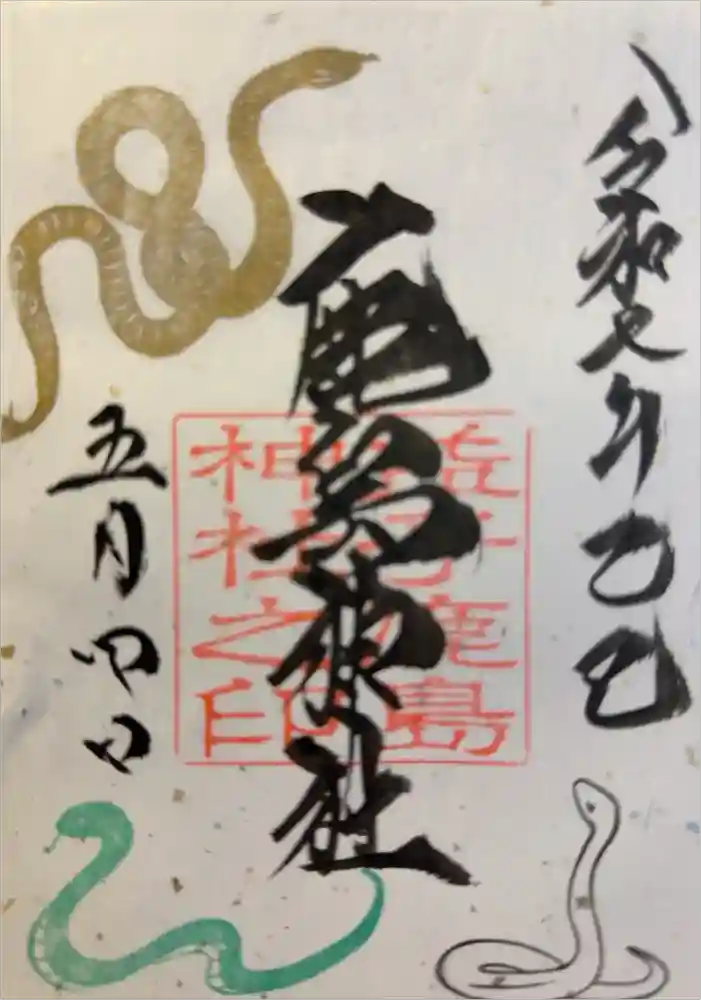 令和七年乙巳
鹿島神社
五月四日
子鹿島
神社之印